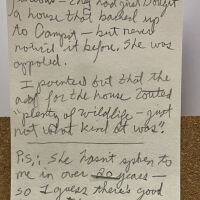 they had just bought
a house that backed up
to Campus — but never
noticed it before. She was
appalled.
I pointed out that the
ad for the house touted
"plenty of wildlife — just
not what kind it was".
P.S.: She hasn't spoken to
me in over 20 years —
so I guess there's good